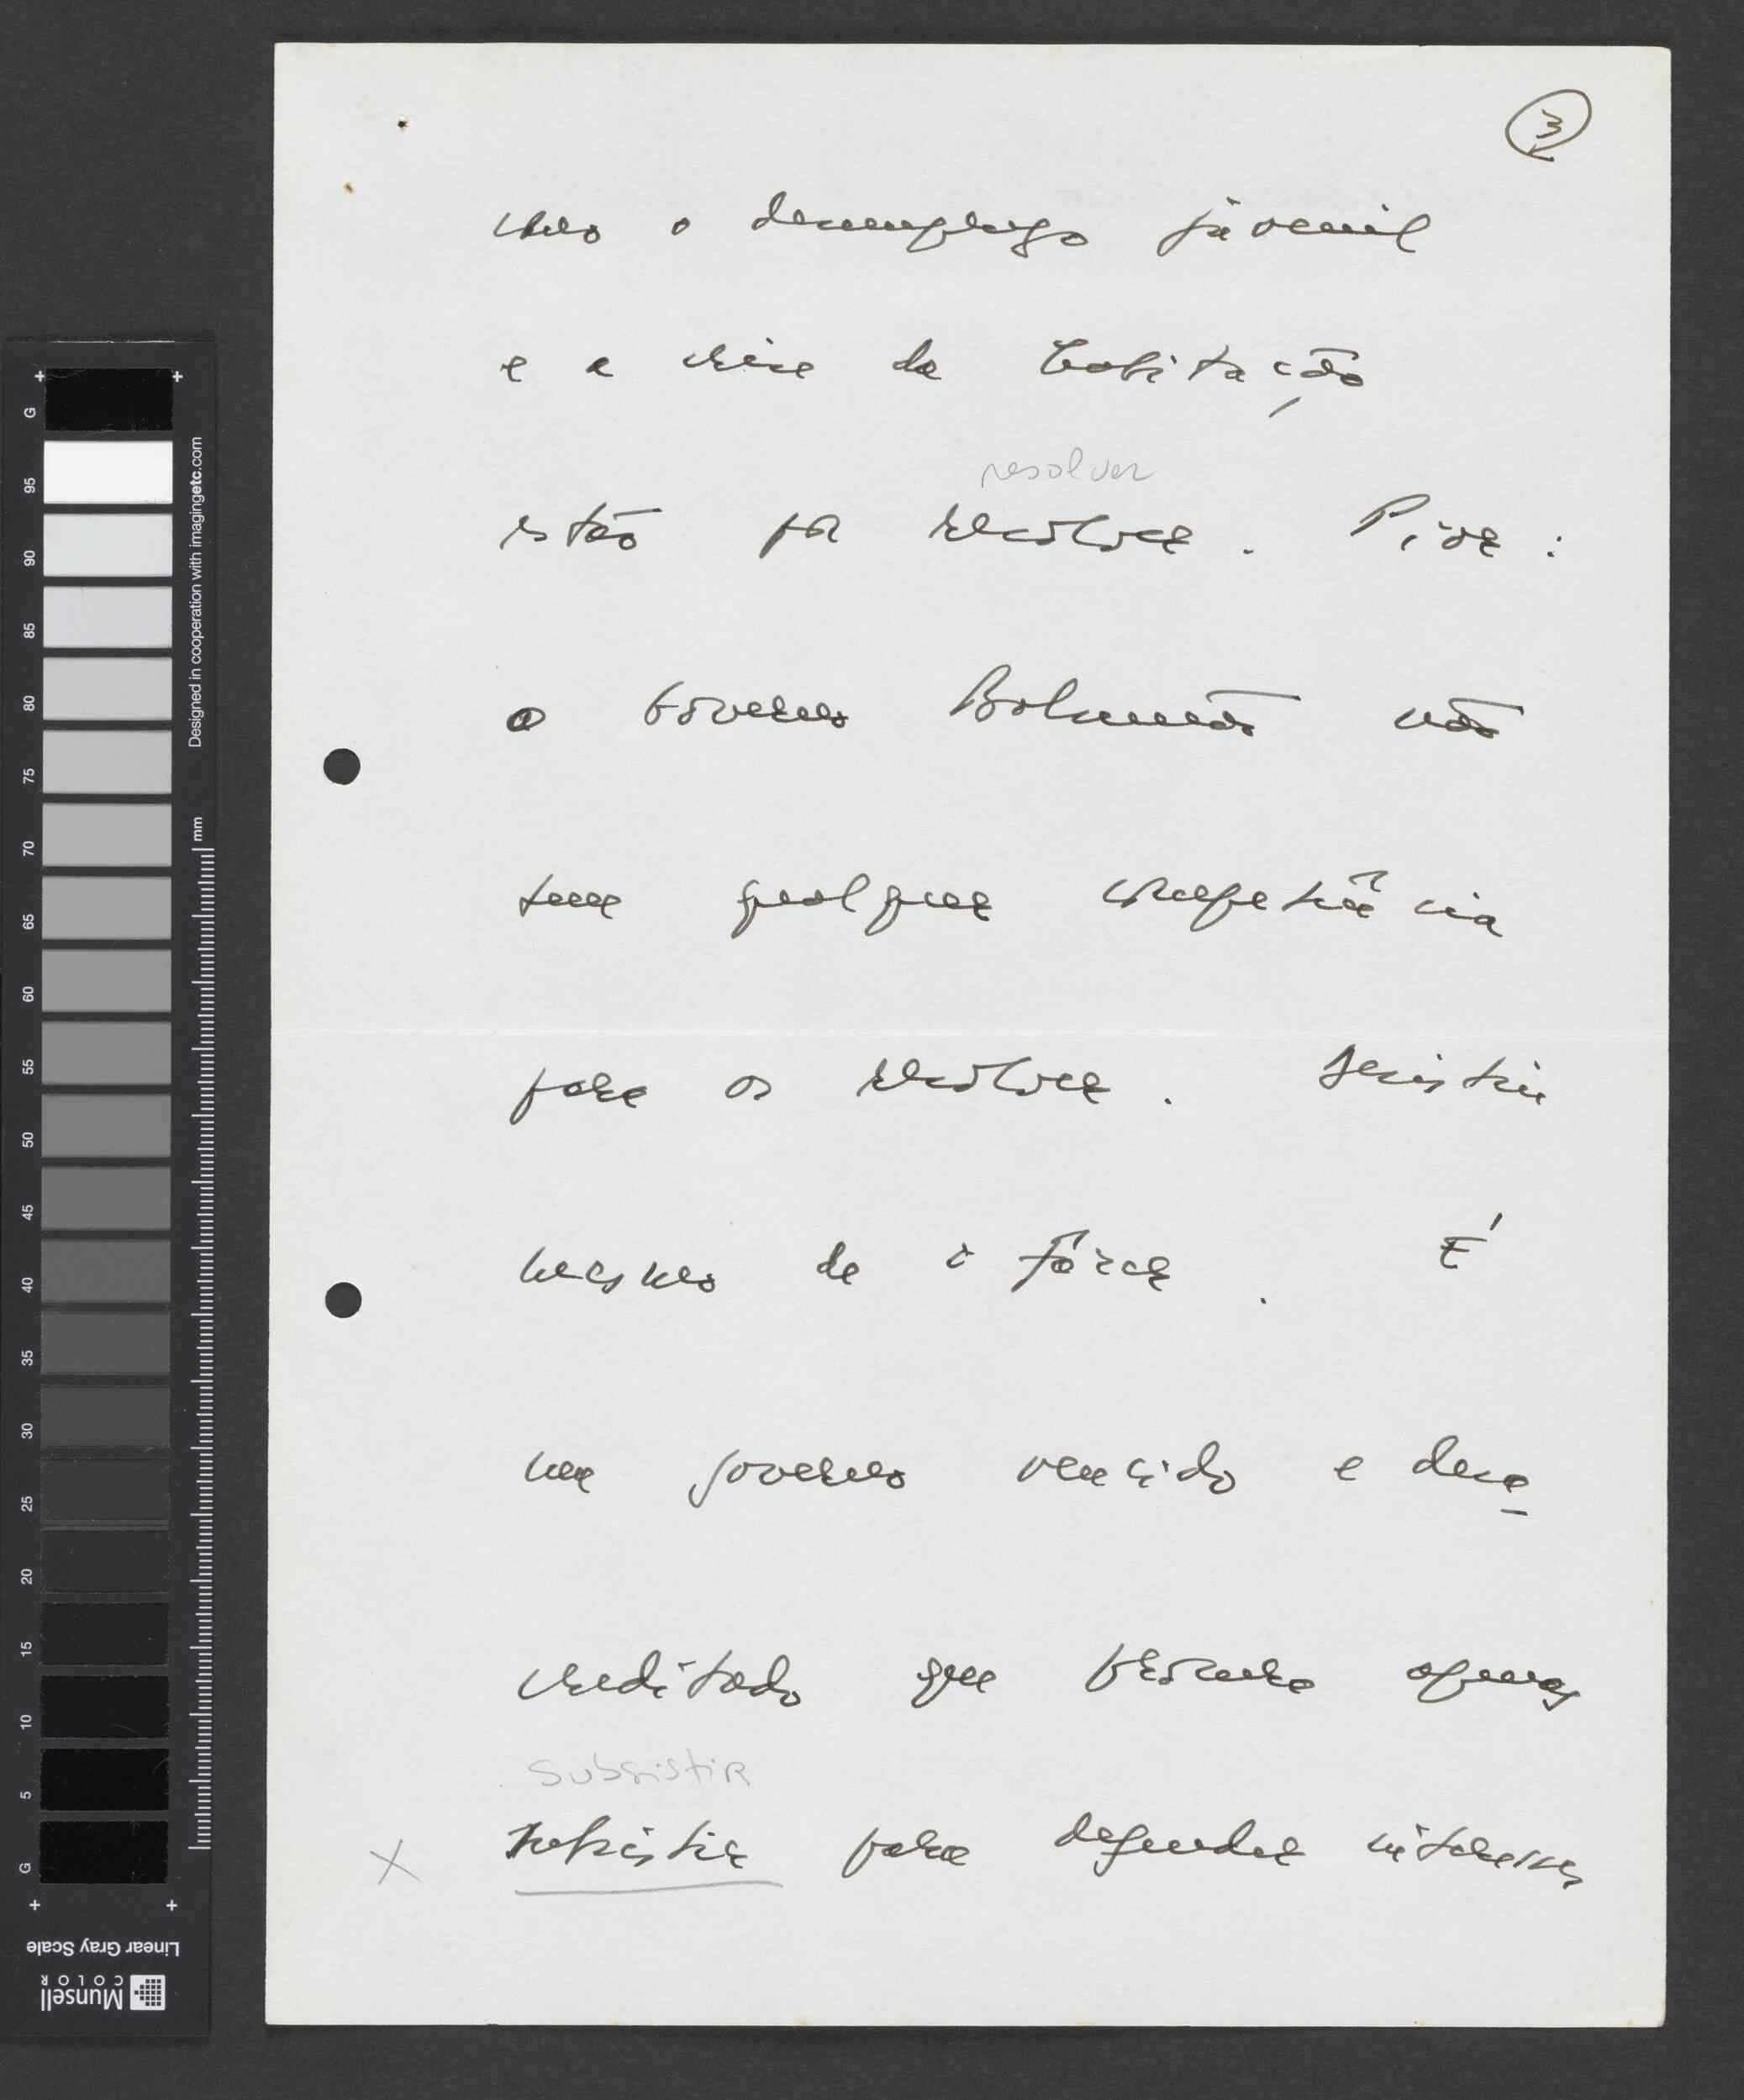 3
como o desemprego juvenil
e a crise da habitação
resolver
estão por resolver. Pior:
o Governo Balsemão não
tem qualquer competência
para os resolver. Desistiu
mesmo de o fazer. É
um governo vencido e desa-
creditado que procura apenas
subsistir
X subsistir para defender interesses
G
95
90
85
80
75
70
65
60
55
50
45
40
35
30
25
20
15
10
5
G
Designed in cooperation with imagingetc.com
mm
Linear Gray Scale
Munsell
COLOR